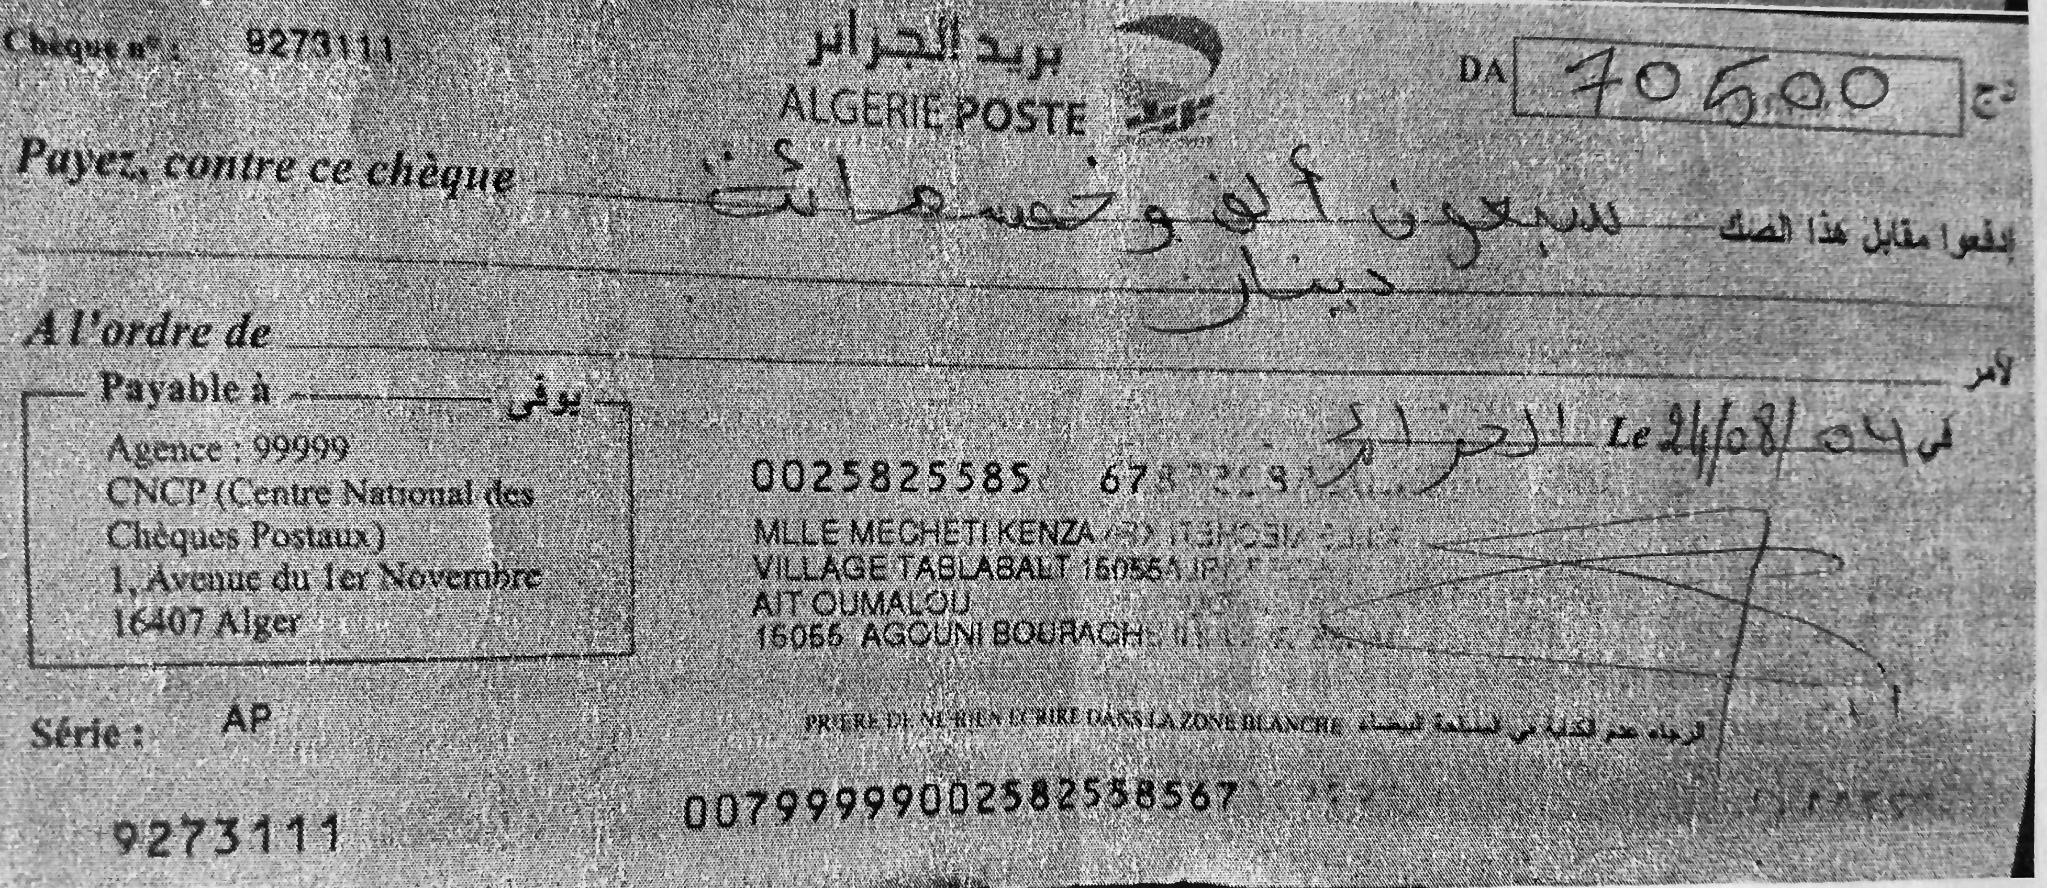 Chèque n° : 9273111
بريد الجزائر
ALGERIE POSTE
DA 70500 دج
Payez, contre ce chèque سبعون ألف و خمسمائة إدفعوا مقابل هذا الصك
دينار
A l'ordre de لأمر
Payable à يوفى
Agence : 99999
CNCP (Centre National des
Chèques Postaux)
1, Avenue du 1er Novembre
16407 Alger
الجزائر Le 24/08/04 في
0025825585 67
MLLE MECHETI KENZA
VILLAGE TABLABALT 15055
AIT OUMALOU
15055 AGOUNI BOURAGH
Série : AP
PRIERE DE NE RIEN ECRIRE DANS LA ZONE BLANCHE الرجاء عدم الكتابة في المساحة البيضاء
9273111
00799999002582558567